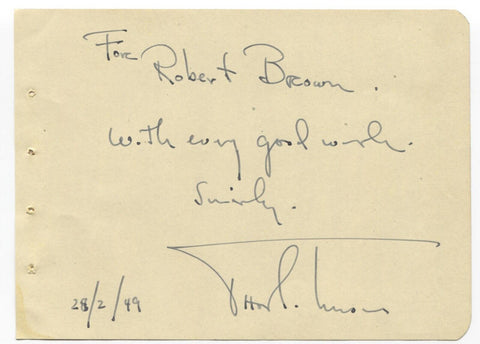 For
Robert Brown.
With every good wish.
Sincerely.
28/2/49